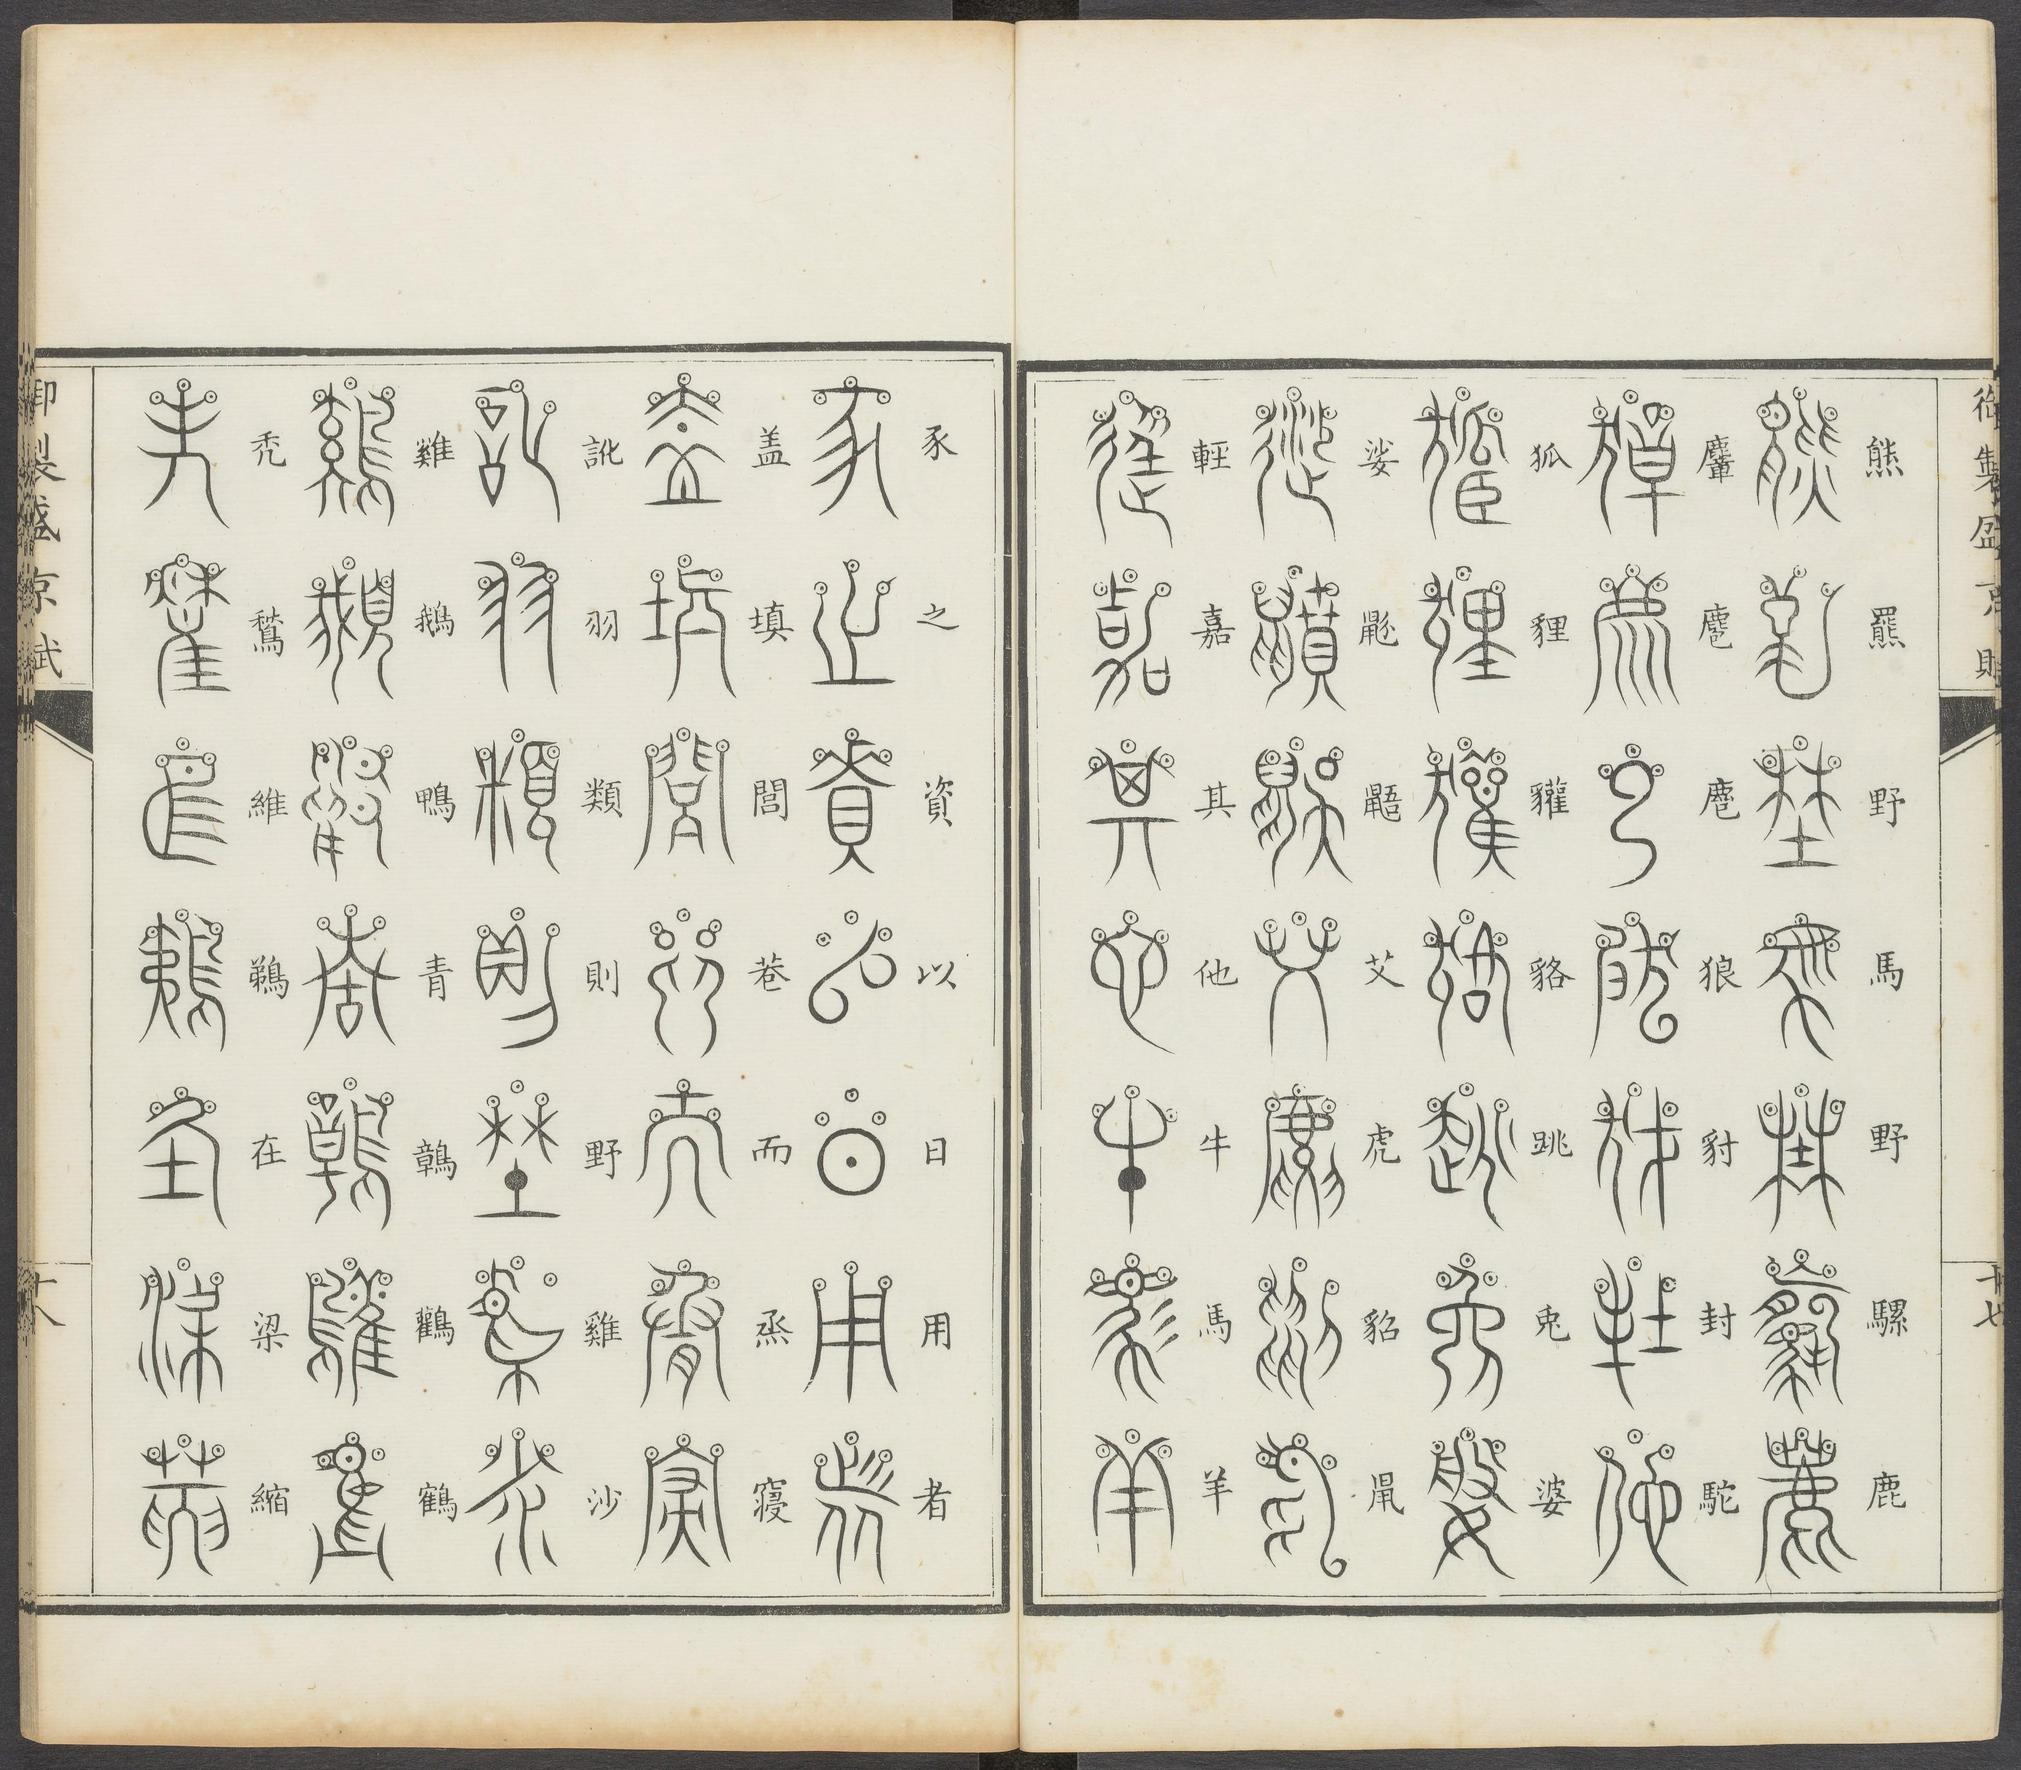 御製盛京賦
十七
熊羆野馬野騾鹿
麞麅麅狼豺封駝
狐貍貛貉跳兎婆
娑鼢鼯艾虎貂鼠
輕嘉其他牛馬羊
豕之資以日用者
盖填閭巷而烝寝
訛羽類則野雞沙
雞鵝鴨青鶉鸛鶴
禿鶖維鵜在梁縮
御製盛京賦
十八